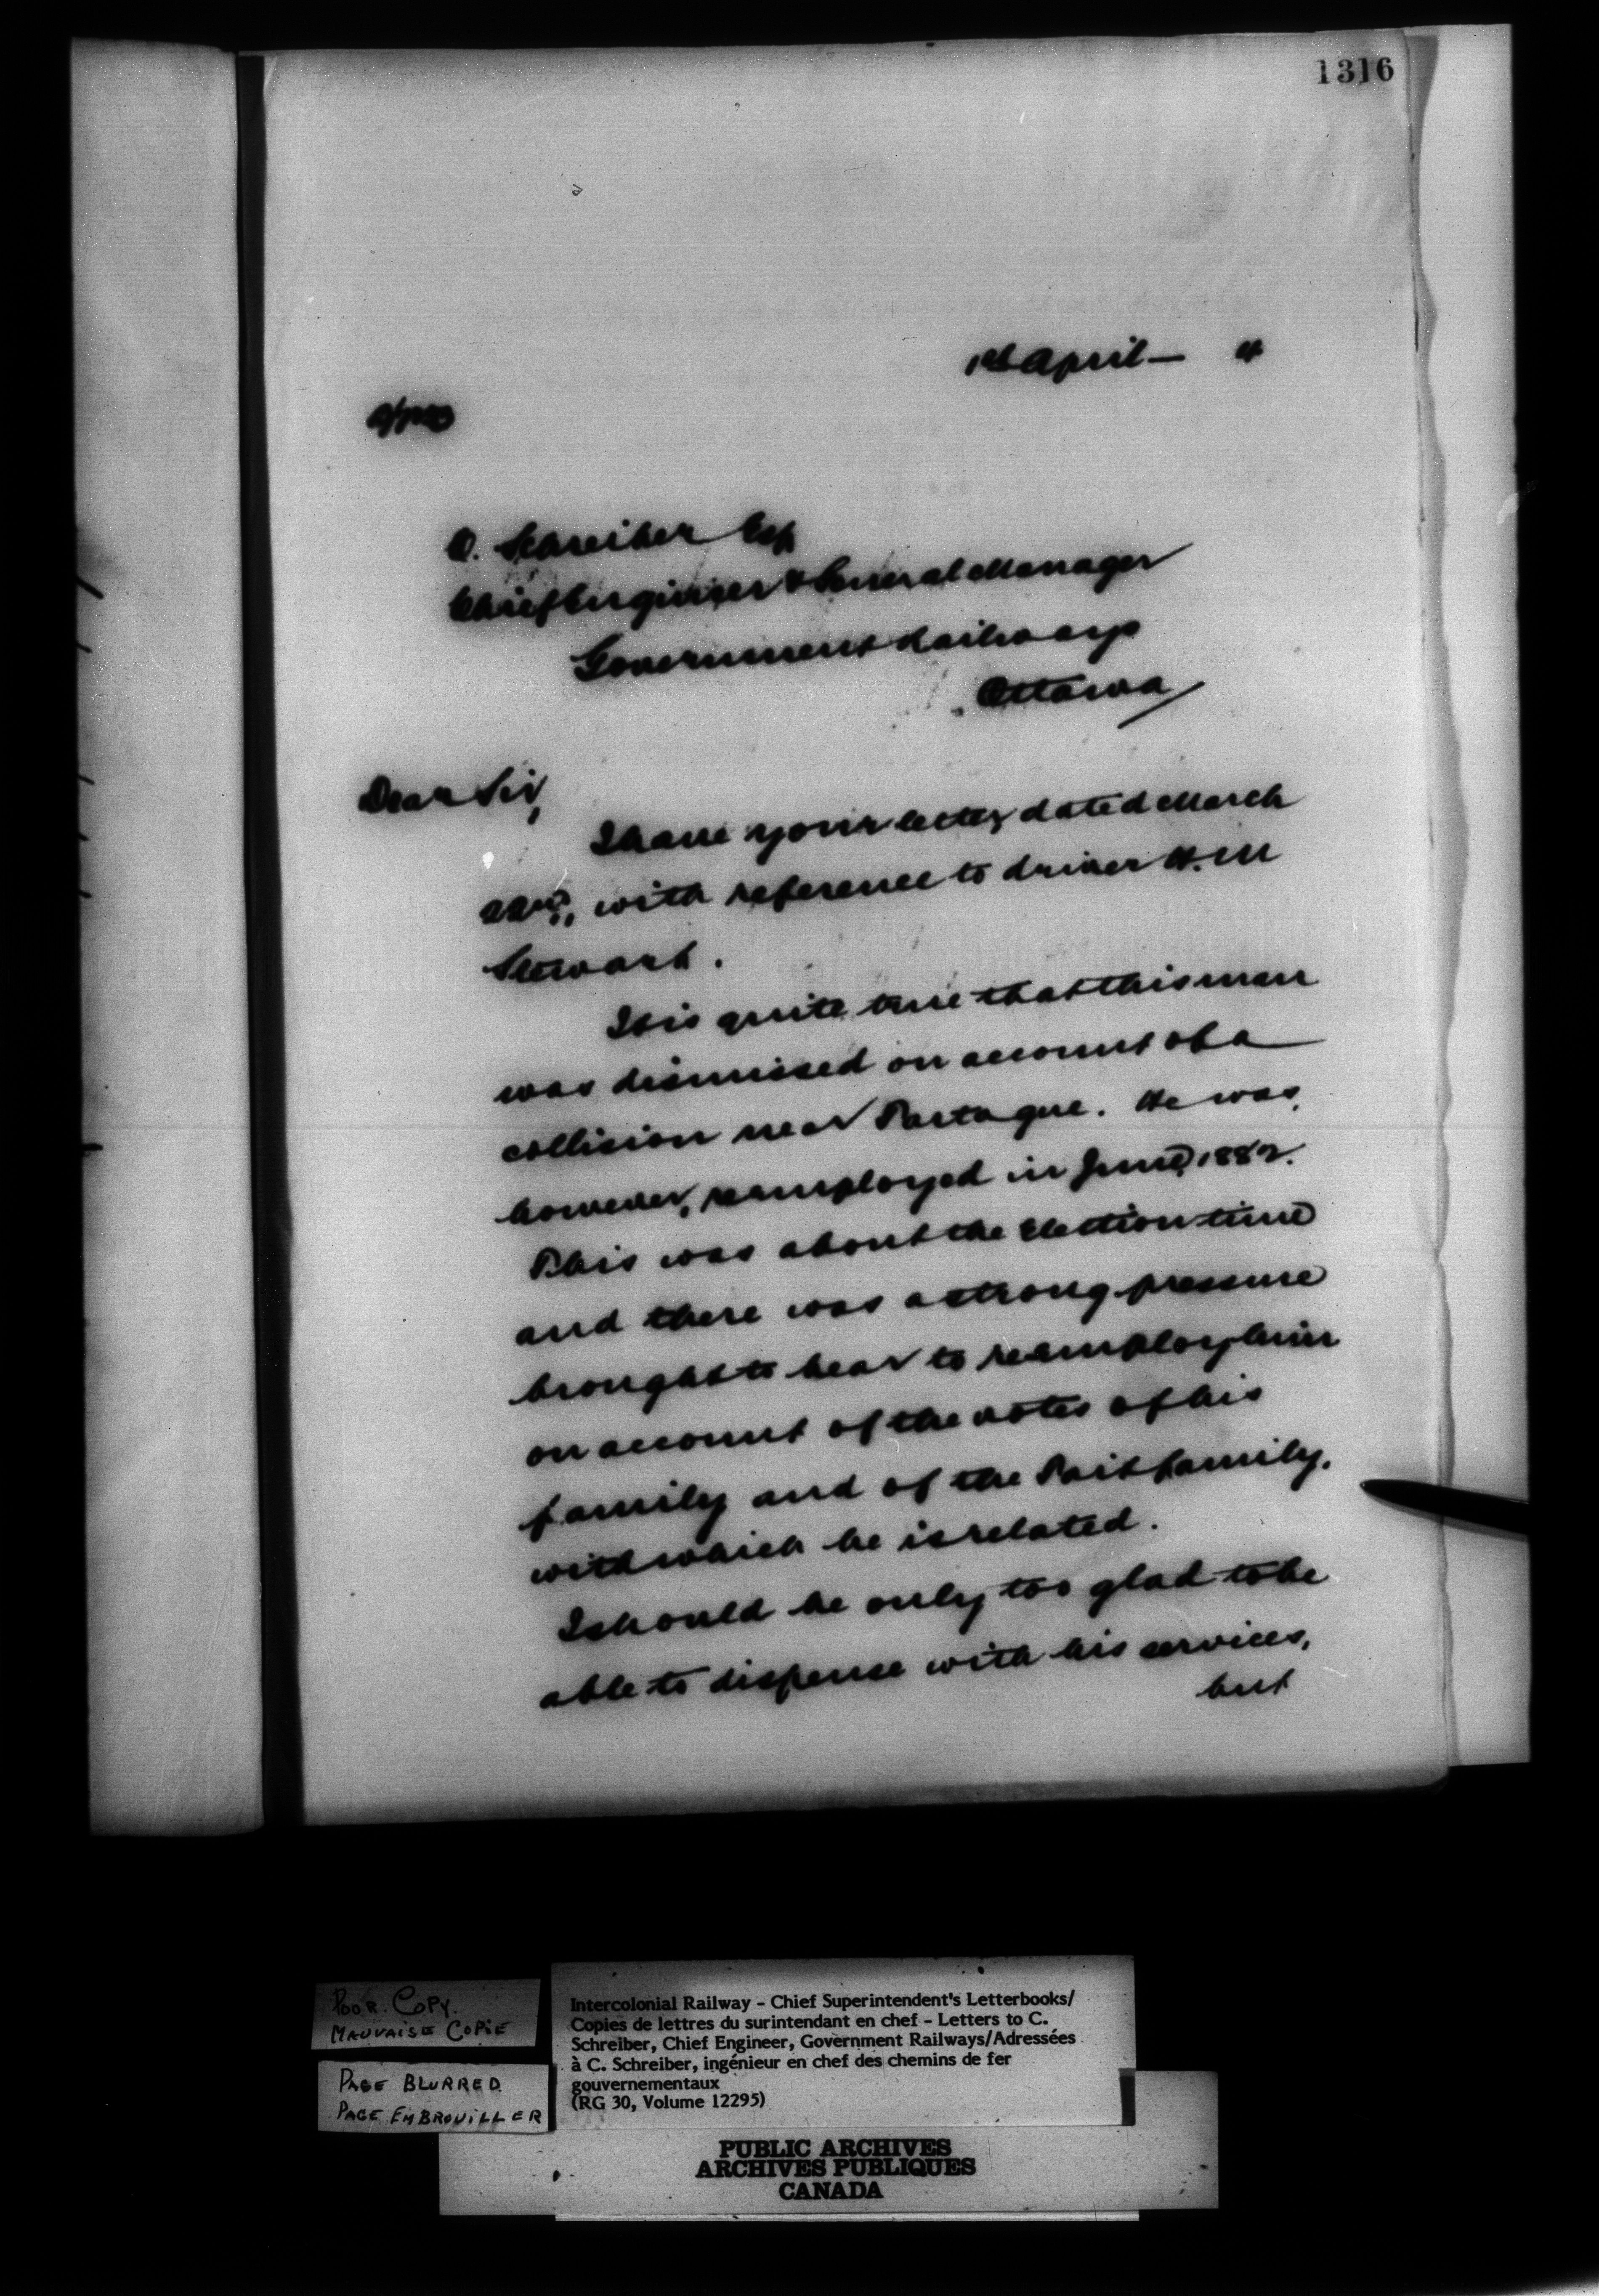 1316
1st April — 4
C. Schreiber Esq
Chief Engineer & General Manager
Government Railways
Ottawa
Dear Sir,
I have your letter dated March
22nd, with reference to driver H. M
Stewart.
It is quite true that this man
was dismissed on account of a
collision near Partague. He was,
however, reemployed in June, 1882.
This was about the Election time
and there was a strong pressure
brought to bear to reemploy him
on account of the votes of his
family and of the Tait family,
with which he is related.
I should be only too glad to be
able to dispense with his services,
but
POOR. COPY.
MAUVAISE COPIE
PAGE BLURRED
PAGE EMBROUILLER
Intercolonial Railway - Chief Superintendent's Letterbooks/
Copies de lettres du surintendant en chef - Letters to C.
Schreiber, Chief Engineer, Government Railways/Adressées
à C. Schreiber, ingénieur en chef des chemins de fer
gouvernementaux
(RG 30, Volume 12295)
PUBLIC ARCHIVES
ARCHIVES PUBLIQUES
CANADA